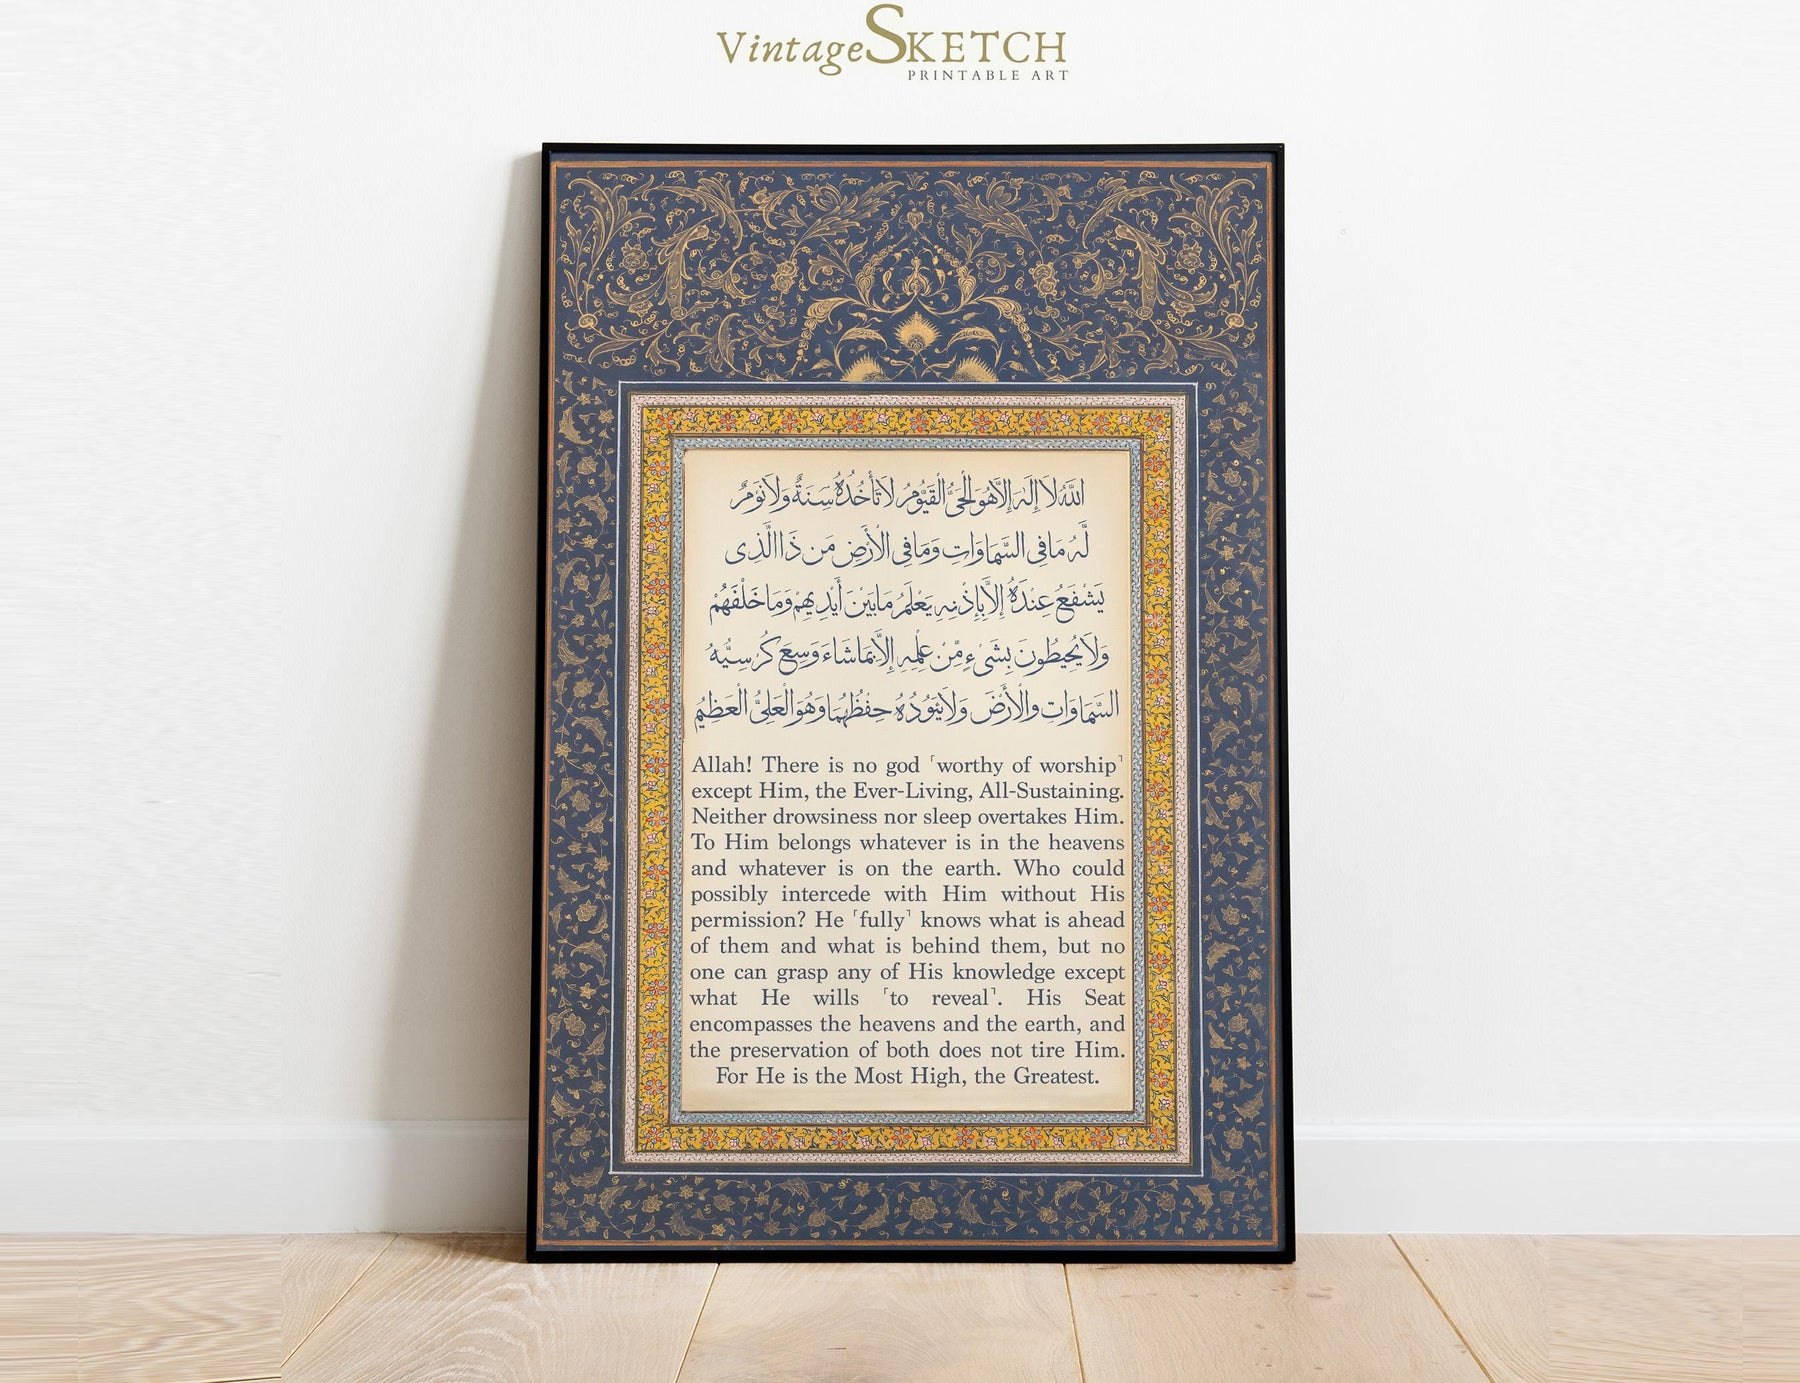 VintageSKETCH
PRINTABLE ART
اللَّهُ لَا إِلَٰهَ إِلَّا هُوَ الْحَيُّ الْقَيُّومُ لَا تَأْخُذُهُ سِنَةٌ وَلَا نَوْمٌ
لَّهُ مَا فِي السَّمَاوَاتِ وَمَا فِي الْأَرْضِ مَن ذَا الَّذِي
يَشْفَعُ عِندَهُ إِلَّا بِإِذْنِهِ يَعْلَمُ مَا بَيْنَ أَيْدِيهِمْ وَمَا خَلْفَهُمْ
وَلَا يُحِيطُونَ بِشَيْءٍ مِّنْ عِلْمِهِ إِلَّا بِمَا شَاءَ وَسِعَ كُرْسِيُّهُ
السَّمَاوَاتِ وَالْأَرْضَ وَلَا يَئُودُهُ حِفْظُهُمَا وَهُوَ الْعَلِيُّ الْعَظِيمُ
Allah! There is no god ˹worthy of worship˺
except Him, the Ever-Living, All-Sustaining.
Neither drowsiness nor sleep overtakes Him.
To Him belongs whatever is in the heavens
and whatever is on the earth. Who could
possibly intercede with Him without His
permission? He ˹fully˺ knows what is ahead
of them and what is behind them, but no
one can grasp any of His knowledge except
what He wills ˹to reveal˺. His Seat
encompasses the heavens and the earth, and
the preservation of both does not tire Him.
For He is the Most High, the Greatest.